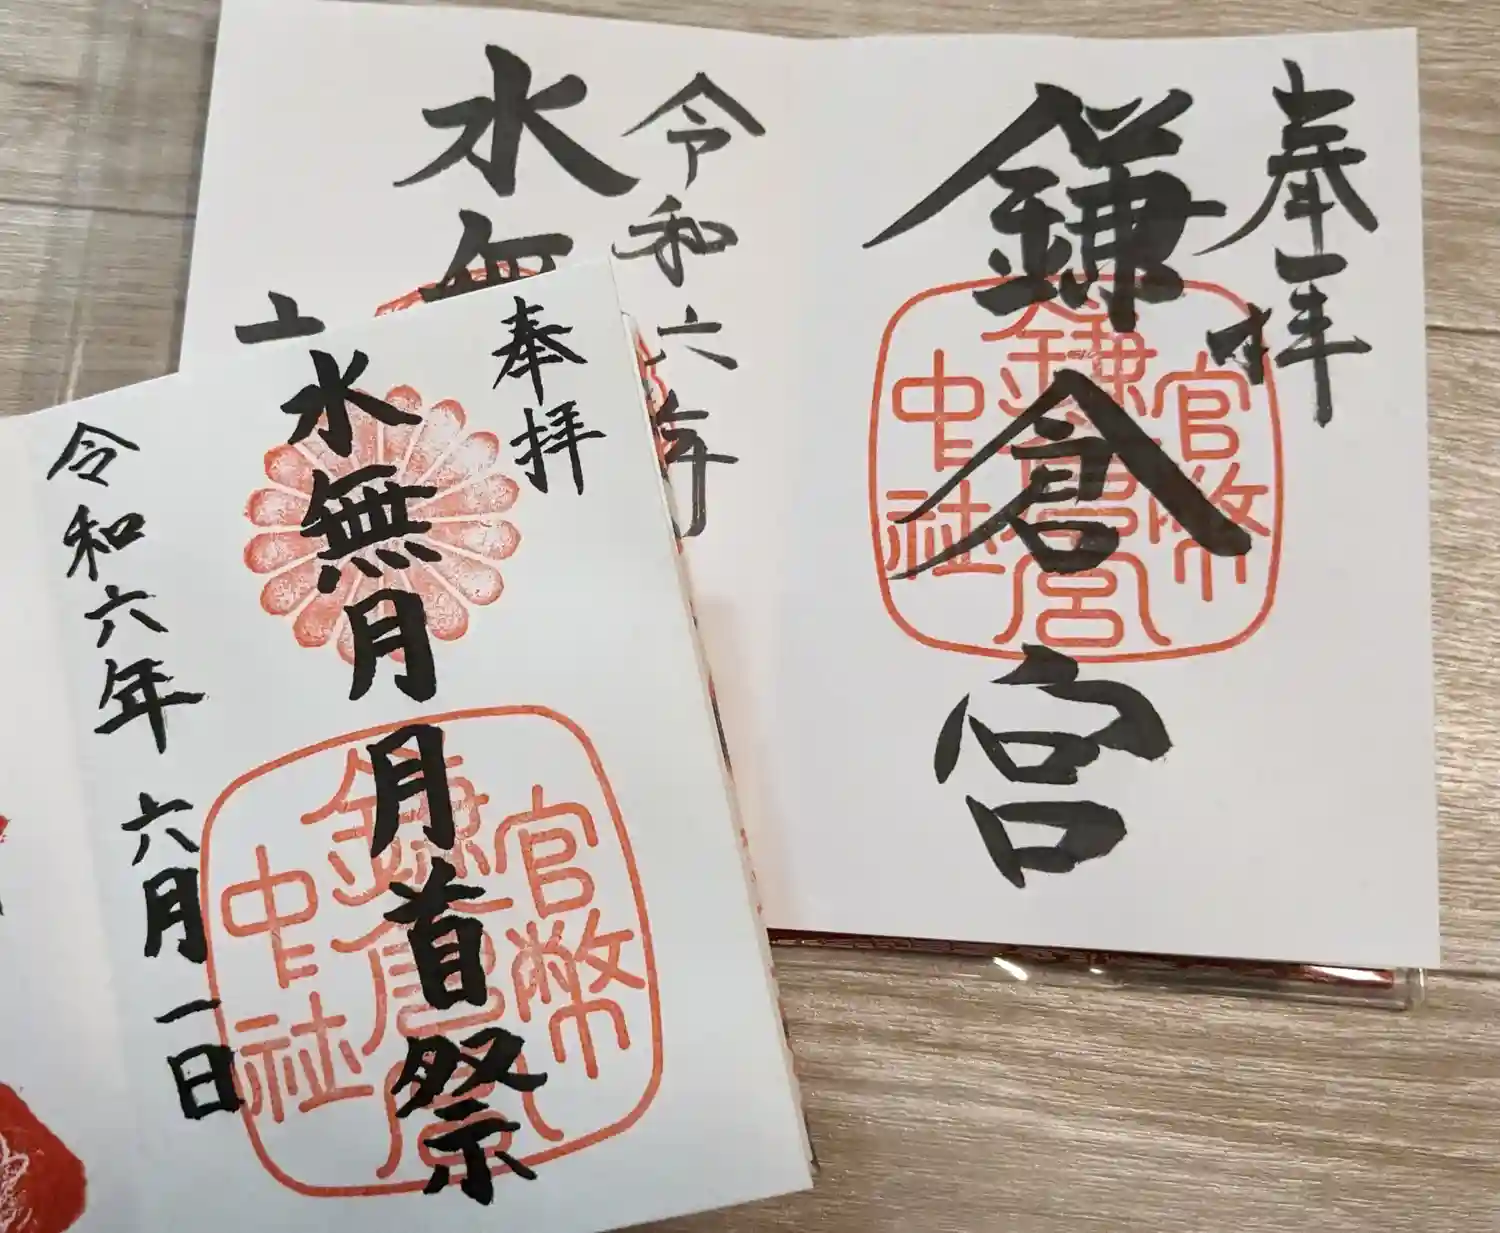 奉拝
鎌倉宮
官幣
鎌倉宮
中社
令和六年
水無
奉拝
水無月 月首祭
官幣
鎌倉宮
中社
令和六年 六月一日